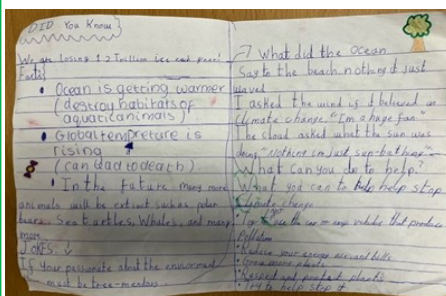 DID You Know?
We are losing 1.2 Trillion ice each year!
Facts
Ocean is getting warmer
(destroy habitats of
aquatic animals)
Global tempreture is
rising
(can dad to death)
In the future many more
animals will be extinct such as polar
bears, Sea turtles, Whales, and many
more
JOKES: ↓
If your passionate about the enviorment
must be tree-mendous
→ What did the ocean
Say to the beach nothing it just
waved
I asked the wind if it believed in
Climate change. "I'm a huge fan."
The cloud asked what the sun was
doing "Nothing im just sun-bathing"
What can you do to help?
What you can to help help stop
Climate change
the car or any vehicles that produce
Pollution
Reduce your energy use and bills
Grow more plants
Respect and protect plants
Try to help stop it